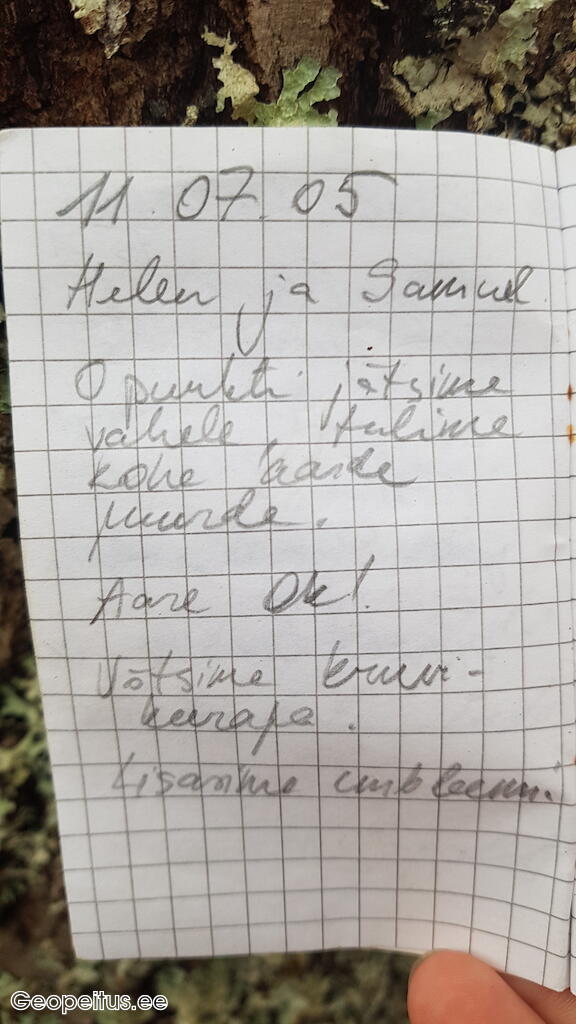 11.07.05
Helen ja Samuel.
0 punkti jätsime
vahele, tulime
kohe aarde
juurde.
Aare OK!
Võtsime kruvi-
keeraja.
Lisasime embleemi.
Geopeitus.ee